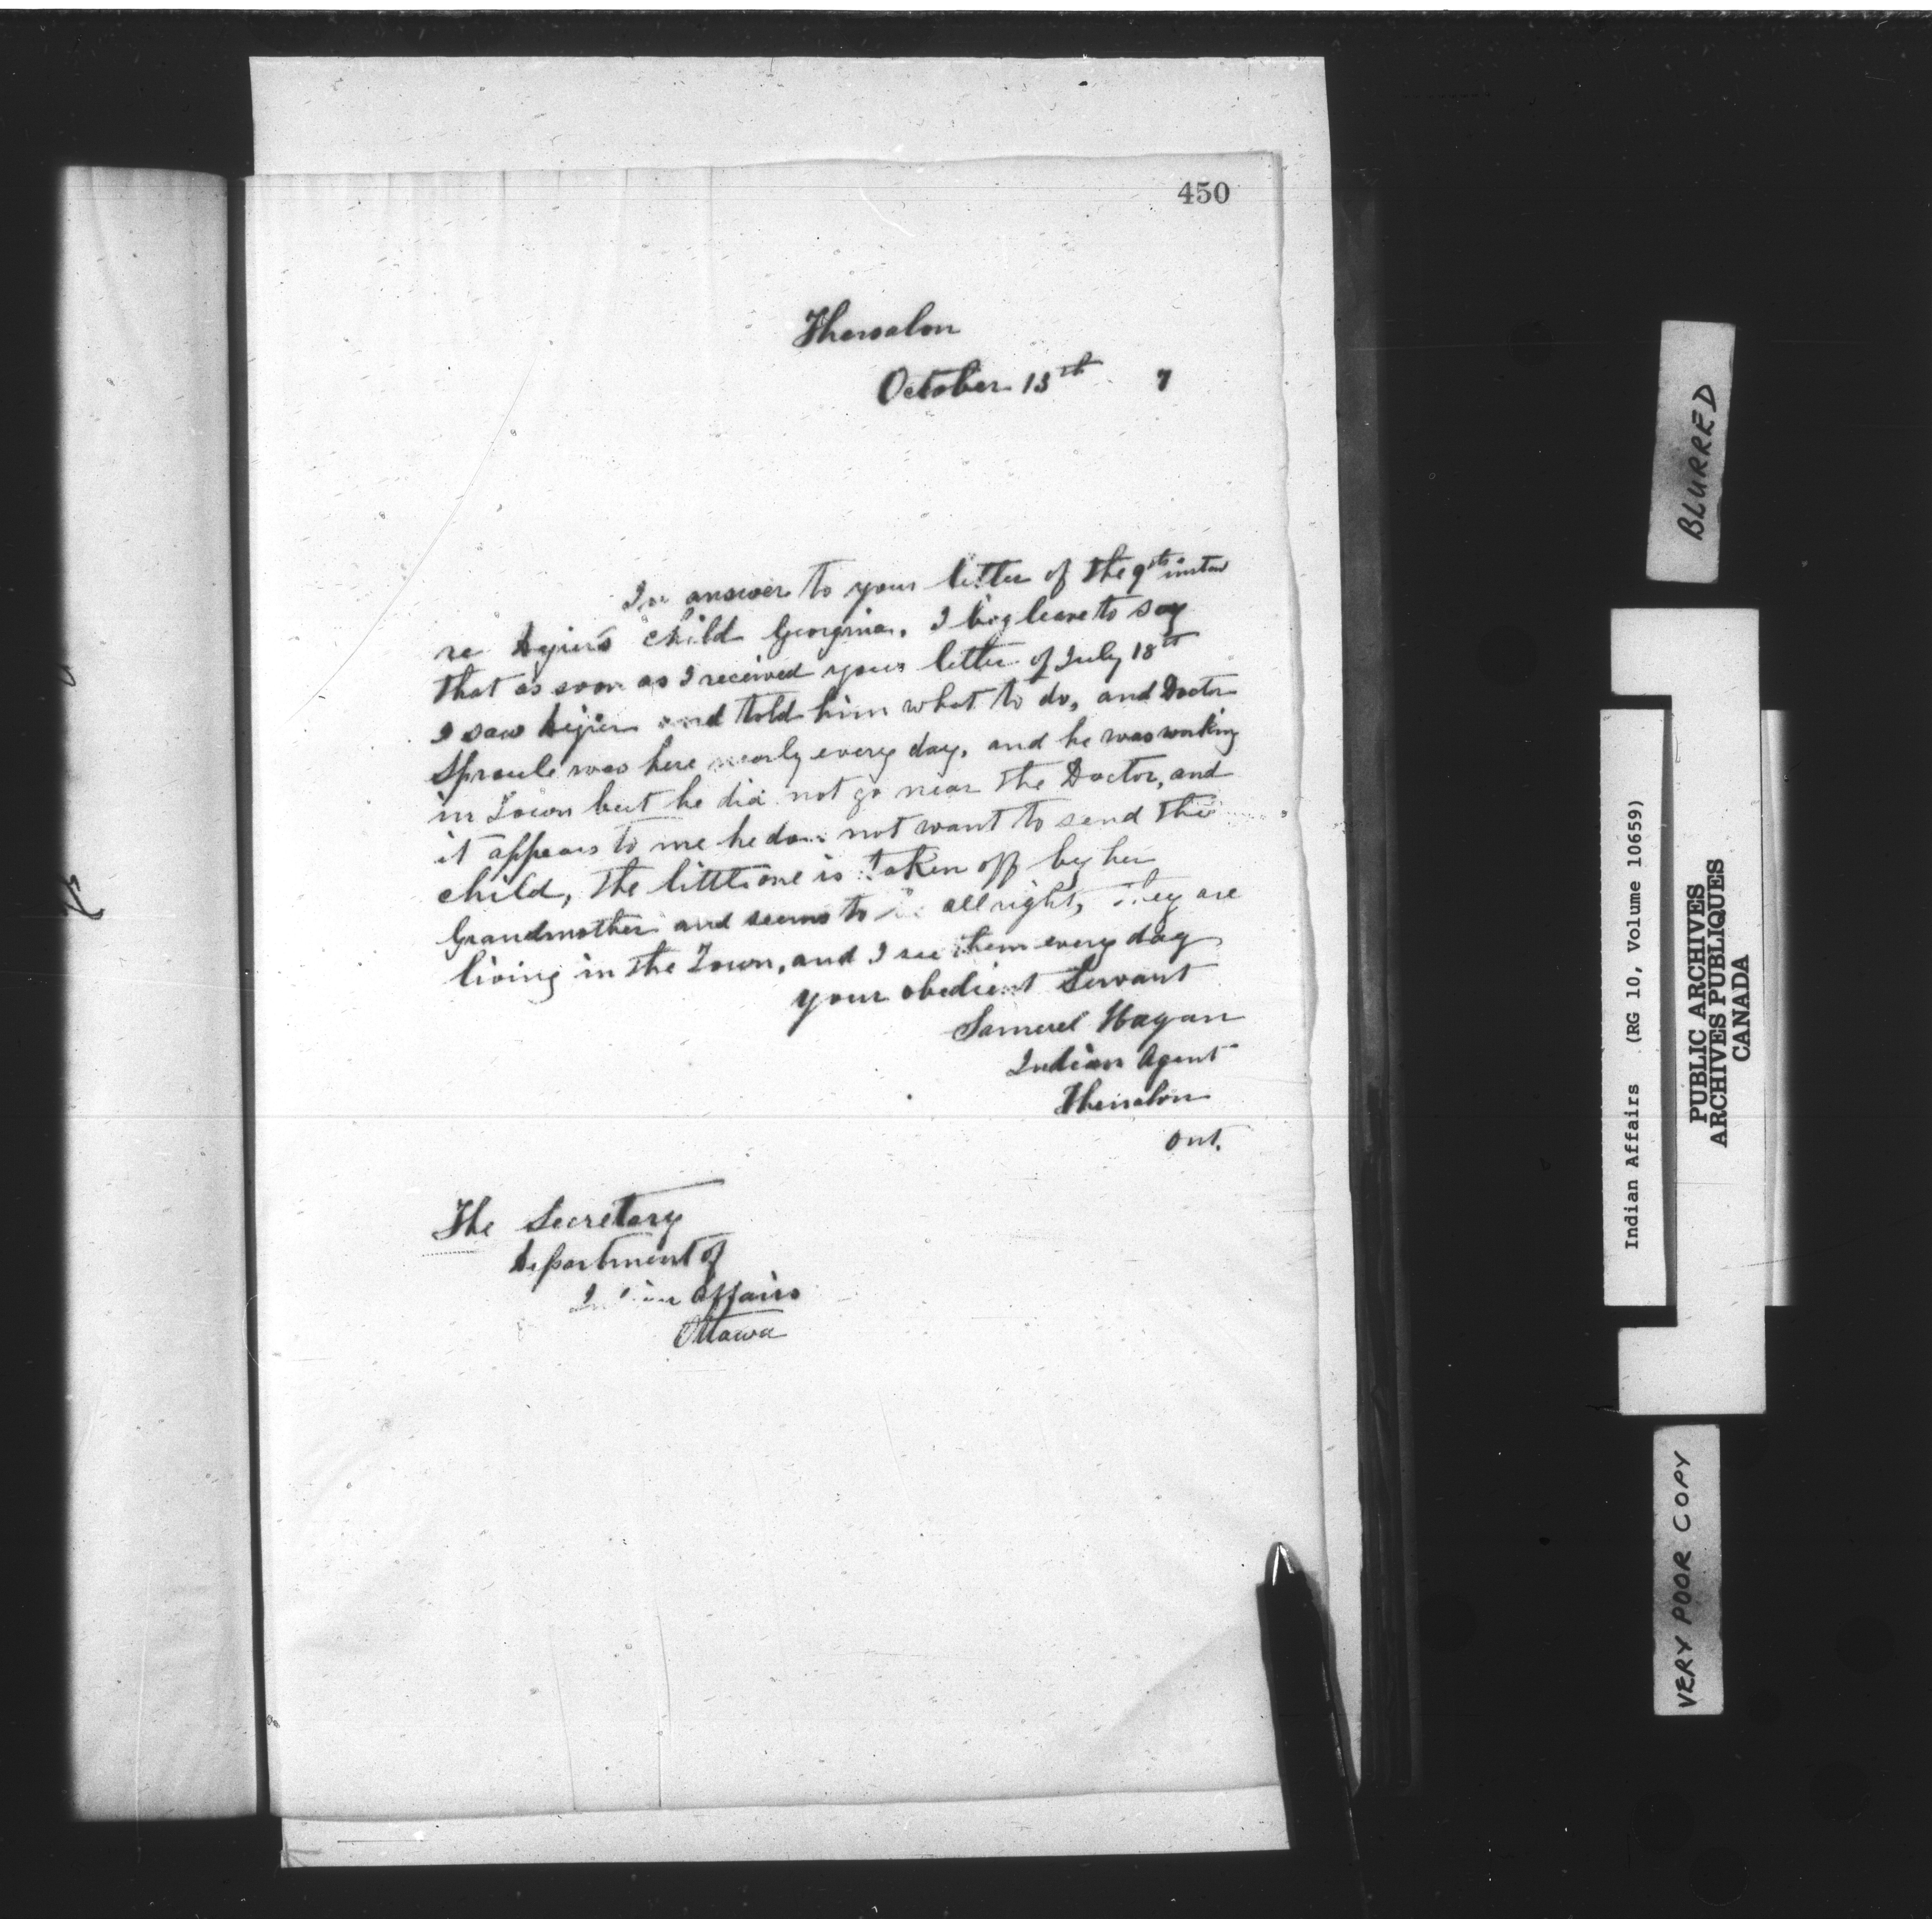 450
Thessalon
October 15th 7
In answer to your letter of the 9th instant
re child Georgina. I beg leave to say
that as soon as I received your letter of July 18th
I saw and told him what to do, and Doctor
Sproule was here nearly every day, and he was working
in Town but he did not go near the Doctor, and
it appears to me he does not want to send the
child, the little one is taken off by her
Grandmother and seems to be all right, They are
living in the Town, and I see them every day
your obedient Servant
Samuel Hagan
Indian Agent
Thessalon
Ont.
The Secretary
Department of
Indian Affairs
Ottawa
BLURRED
Indian Affairs (RG 10, Volume 10659)
PUBLIC ARCHIVES
ARCHIVES PUBLIQUES
CANADA
VERY POOR COPY